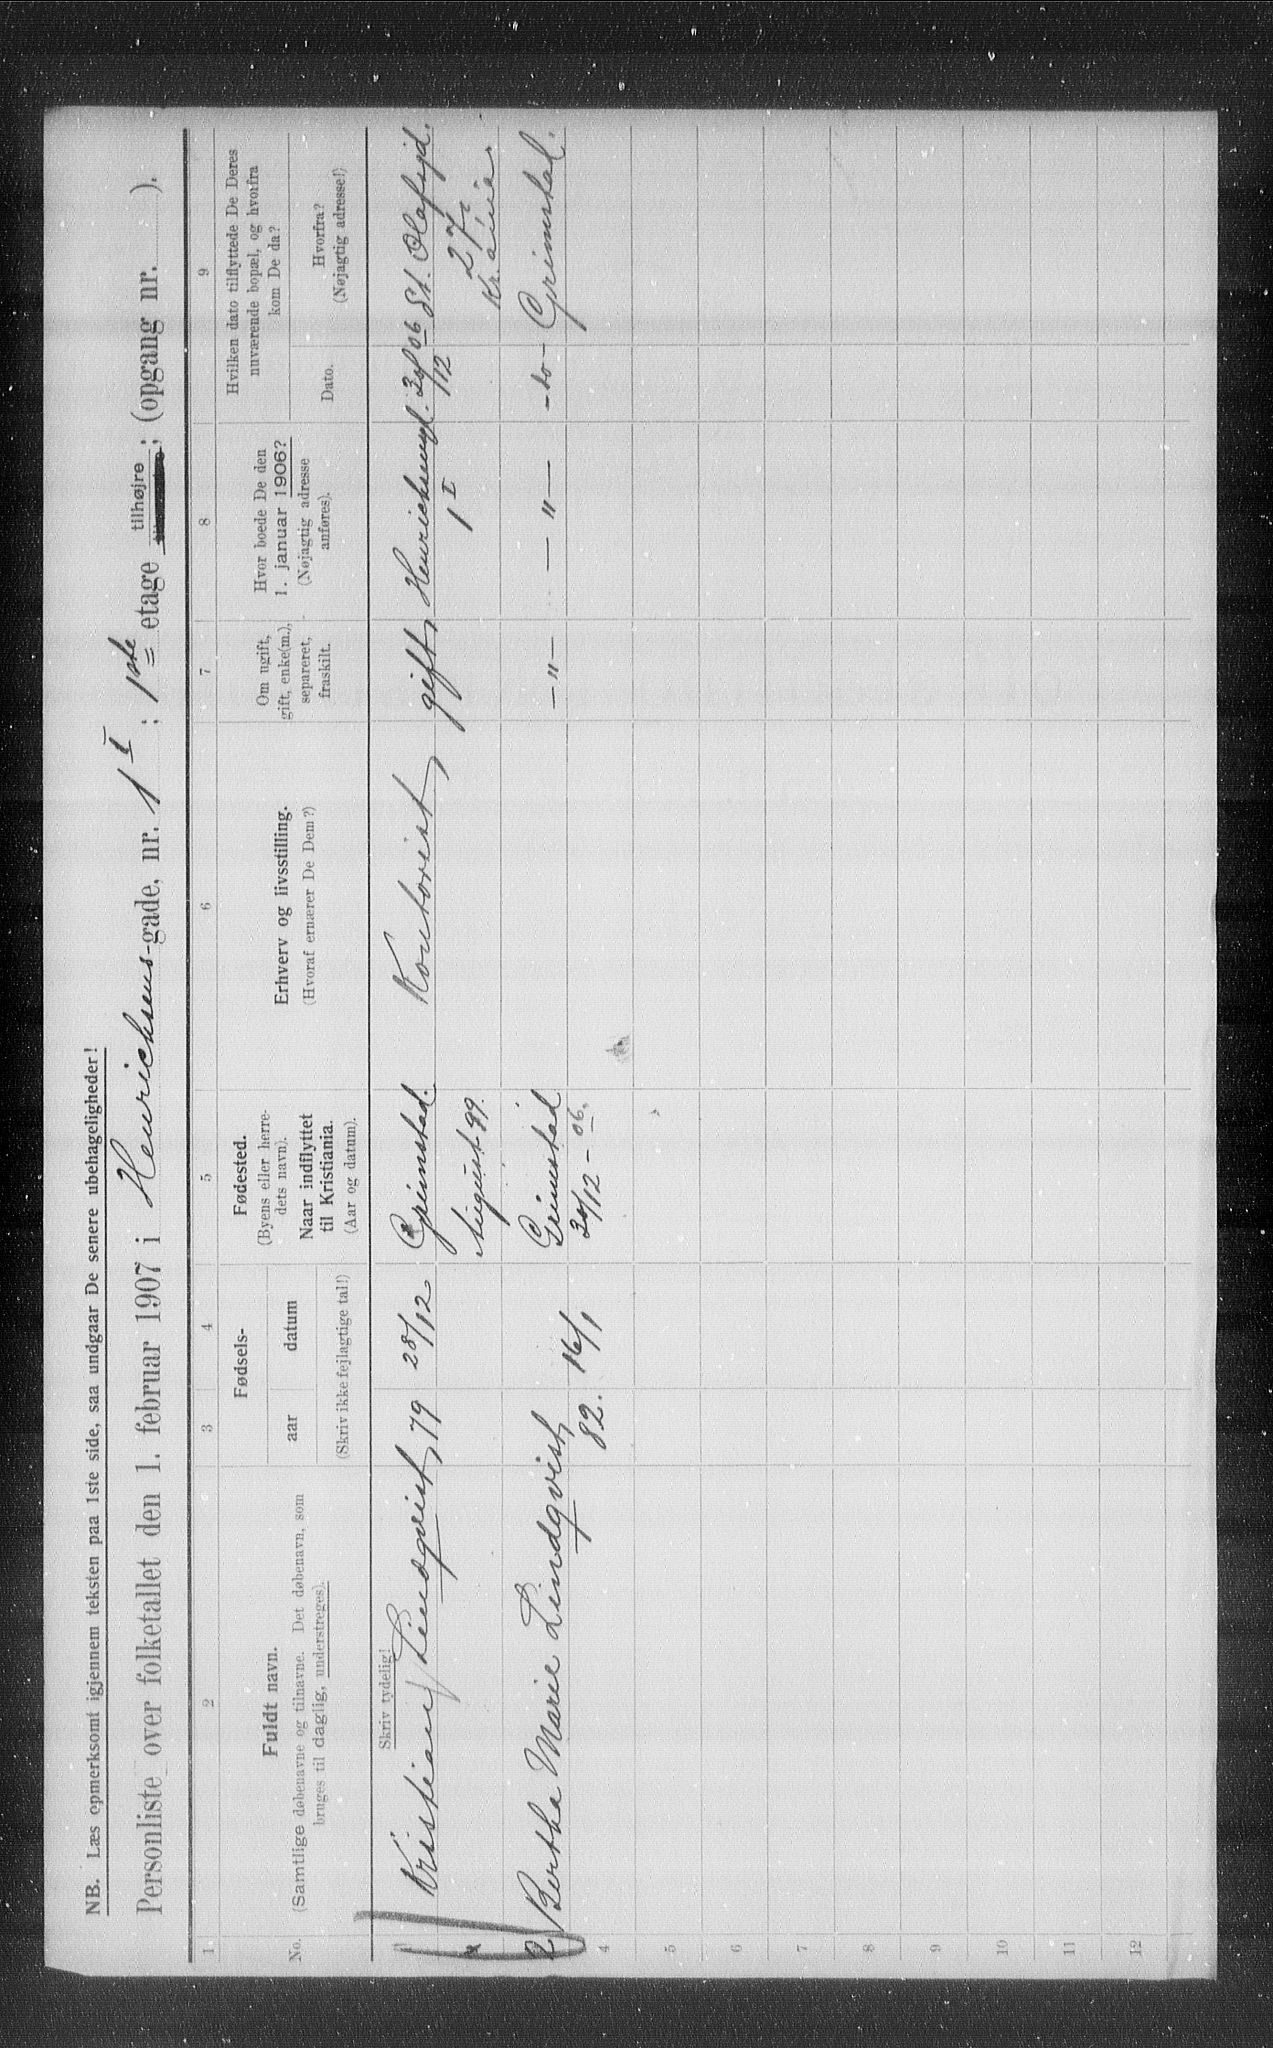 NB. Læs opmerksomt igjennem teksten paa 1ste side, saa undgaar De senere ubehageligheder!
Personliste over folketallet den 1. februar 1907 i Henrichsens-gade, nr. 1 I ; 1ste etage tilhøjre ; (opgang nr. ).
1
2
3
4
5
6
7
8
9
No.
Fuldt navn.
(Samtlige døbenavne og tilnavne. Det døbenavn, som
bruges til daglig, understreges).
Fødsels-
aar
datum
(Skriv ikke fejlagtige tal!)
Fødested.
(Byens eller herre-
dets navn).
Naar indflyttet
til Kristiania.
(Aar og datum).
Erhverv og livsstilling.
(Hvoraf ernærer De Dem?)
Om ugift,
gift, enke(m.),
separeret,
fraskilt.
Hvor boede De den
1. januar 1906?
(Nøjagtig adresse
anføres).
Hvilken dato tilflyttede De Deres
nuværende bopæl, og hvorfra
kom De da?
Dato.
Hvorfra?
(Nøjagtig adresse!)
Skriv tydelig!
Kristian Lindqvist, 79 28/12 Grimstad. Kontorist, gift, 30/12 06 St. Olafsgd.
August 99. 1 I 27
Kr.ania.
2 Bertha Marie Lindqvist, 82. 16/1 Grimstad -"- -"- -do- Grimstad.
30/12 - 06.
4
5
6
7
8
9
10
11
12